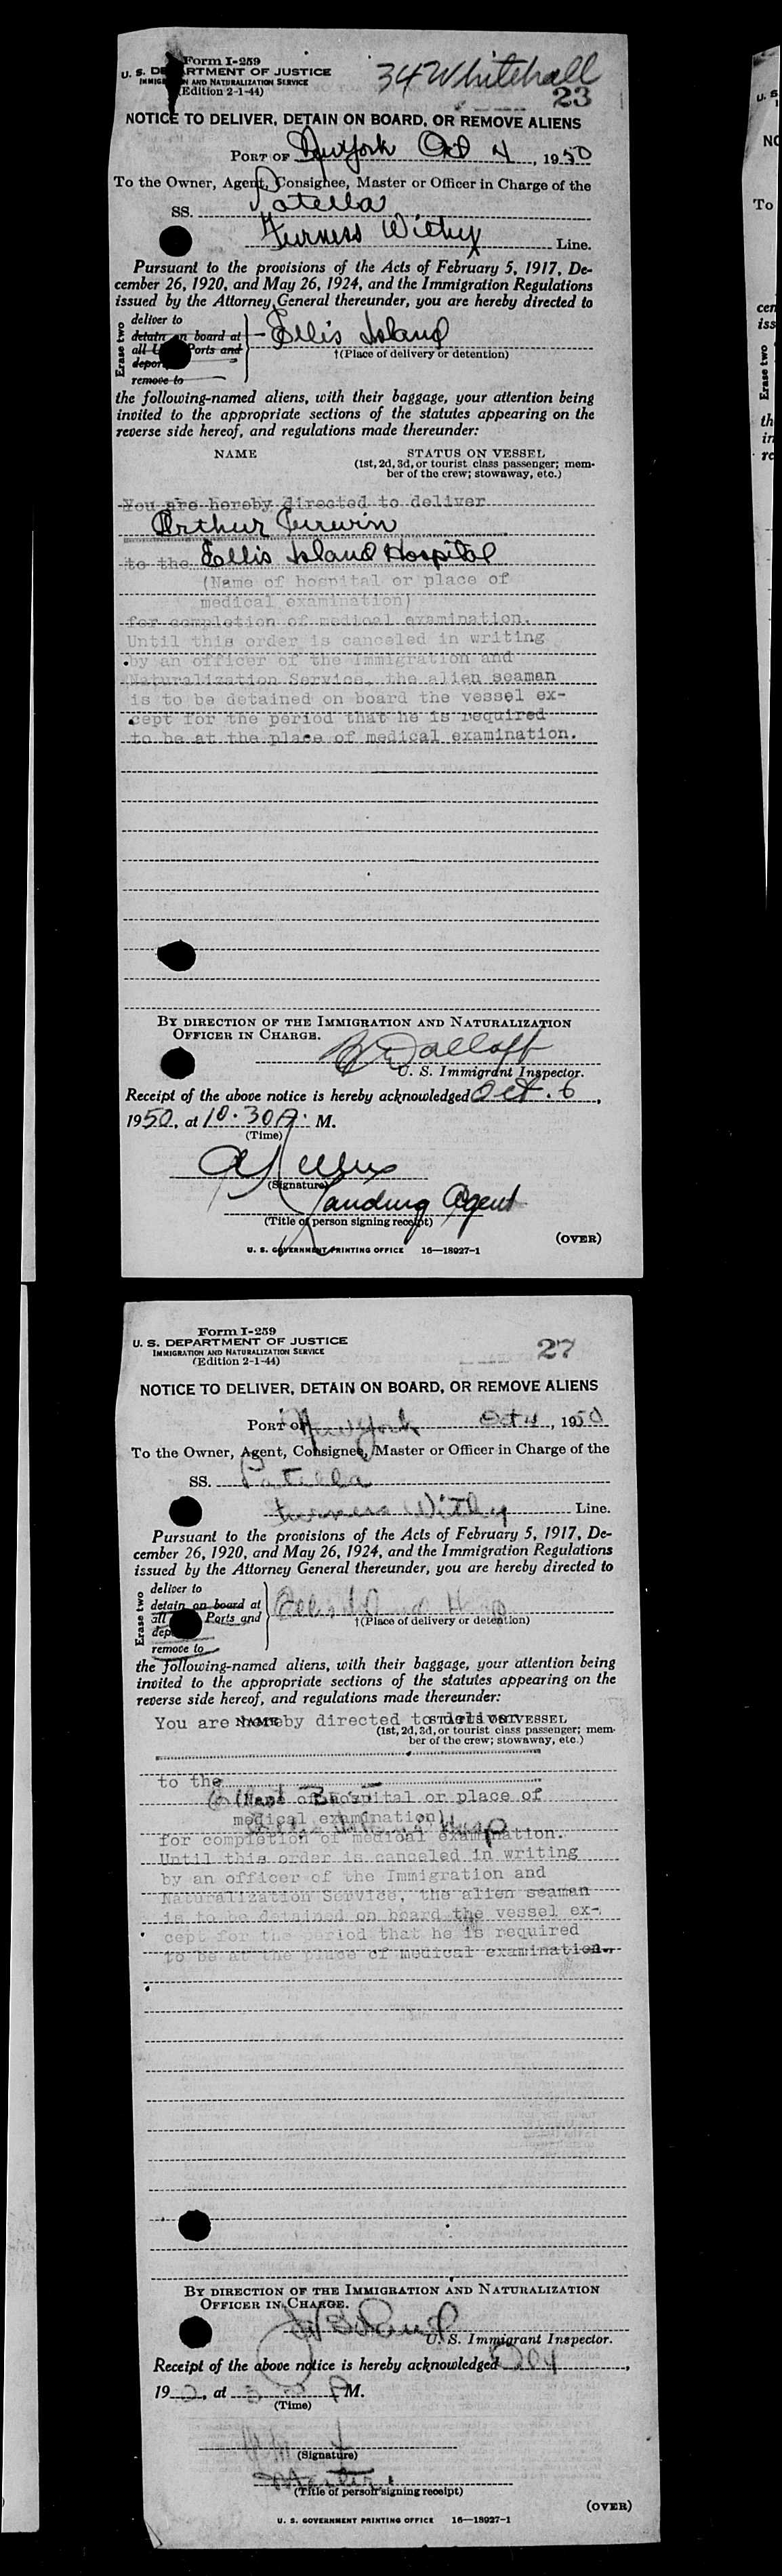 Form I-259
U. S. DEPARTMENT OF JUSTICE
IMMIGRATION AND NATURALIZATION SERVICE
(Edition 2-1-44)
34 Whitehall
23
NOTICE TO DELIVER, DETAIN ON BOARD, OR REMOVE ALIENS
PORT OF New York Oct 4, 1950
To the Owner, Agent, Consignee, Master or Officer in Charge of the
SS. Patella
Furness Withy Line.
Pursuant to the provisions of the Acts of February 5, 1917, De-
cember 26, 1920, and May 26, 1924, and the Immigration Regulations
issued by the Attorney General thereunder, you are hereby directed to
Erase two
deliver to
detain on board at
all U Ports and
deport
remove to
Ellis Island
†(Place of delivery or detention)
the following-named aliens, with their baggage, your attention being
invited to the appropriate sections of the statutes appearing on the
reverse side hereof, and regulations made thereunder:
NAME STATUS ON VESSEL
(1st, 2d, 3d, or tourist class passenger; mem-
ber of the crew; stowaway, etc.)
You are hereby directed to deliver
Arthur
to the Ellis Island Hospital
(Name of hospital or place of
medical examination)
for completion of medical examination.
Until this order is canceled in writing
by an officer of the Immigration and
Naturalization Service, the alien seaman
is to be detained on board the vessel ex-
cept for the period that he is required
to be at the place of medical examination.
BY DIRECTION OF THE IMMIGRATION AND NATURALIZATION
OFFICER IN CHARGE.
U. S. Immigrant Inspector.
Receipt of the above notice is hereby acknowledged Oct. 6,
1950, at 10.30 A. M.
(Time)
(Signature)
Landing Agent
(Title of person signing receipt)
(OVER)
U. S. GOVERNMENT PRINTING OFFICE 16—18927-1
Form I-259
U. S. DEPARTMENT OF JUSTICE
IMMIGRATION AND NATURALIZATION SERVICE
(Edition 2-1-44)
27
NOTICE TO DELIVER, DETAIN ON BOARD, OR REMOVE ALIENS
PORT OF New York Oct 4, 1950
To the Owner, Agent, Consignee, Master or Officer in Charge of the
SS. Patella
Furness Withy Line.
Pursuant to the provisions of the Acts of February 5, 1917, De-
cember 26, 1920, and May 26, 1924, and the Immigration Regulations
issued by the Attorney General thereunder, you are hereby directed to
Erase two
deliver to
detain on board at
all Ports and
dep
remove to
Ellis Island Hosp
†(Place of delivery or detention)
the following-named aliens, with their baggage, your attention being
invited to the appropriate sections of the statutes appearing on the
reverse side hereof, and regulations made thereunder:
NAME STATUS ON VESSEL
You are hereby directed to deliver
(1st, 2d, 3d, or tourist class passenger; mem-
ber of the crew; stowaway, etc.)
to the
(Name of hospital or place of
medical examination)
Hosp
for completion of medical examination.
Until this order is canceled in writing
by an officer of the Immigration and
Naturalization Service, the alien seaman
is to be detained on board the vessel ex-
cept for the period that he is required
to be at the place of medical examination.
BY DIRECTION OF THE IMMIGRATION AND NATURALIZATION
OFFICER IN CHARGE.
U. S. Immigrant Inspector.
Receipt of the above notice is hereby acknowledged
19 , at M.
(Time)
(Signature)
Master
(Title of person signing receipt)
(OVER)
U. S. GOVERNMENT PRINTING OFFICE 16—18927-1